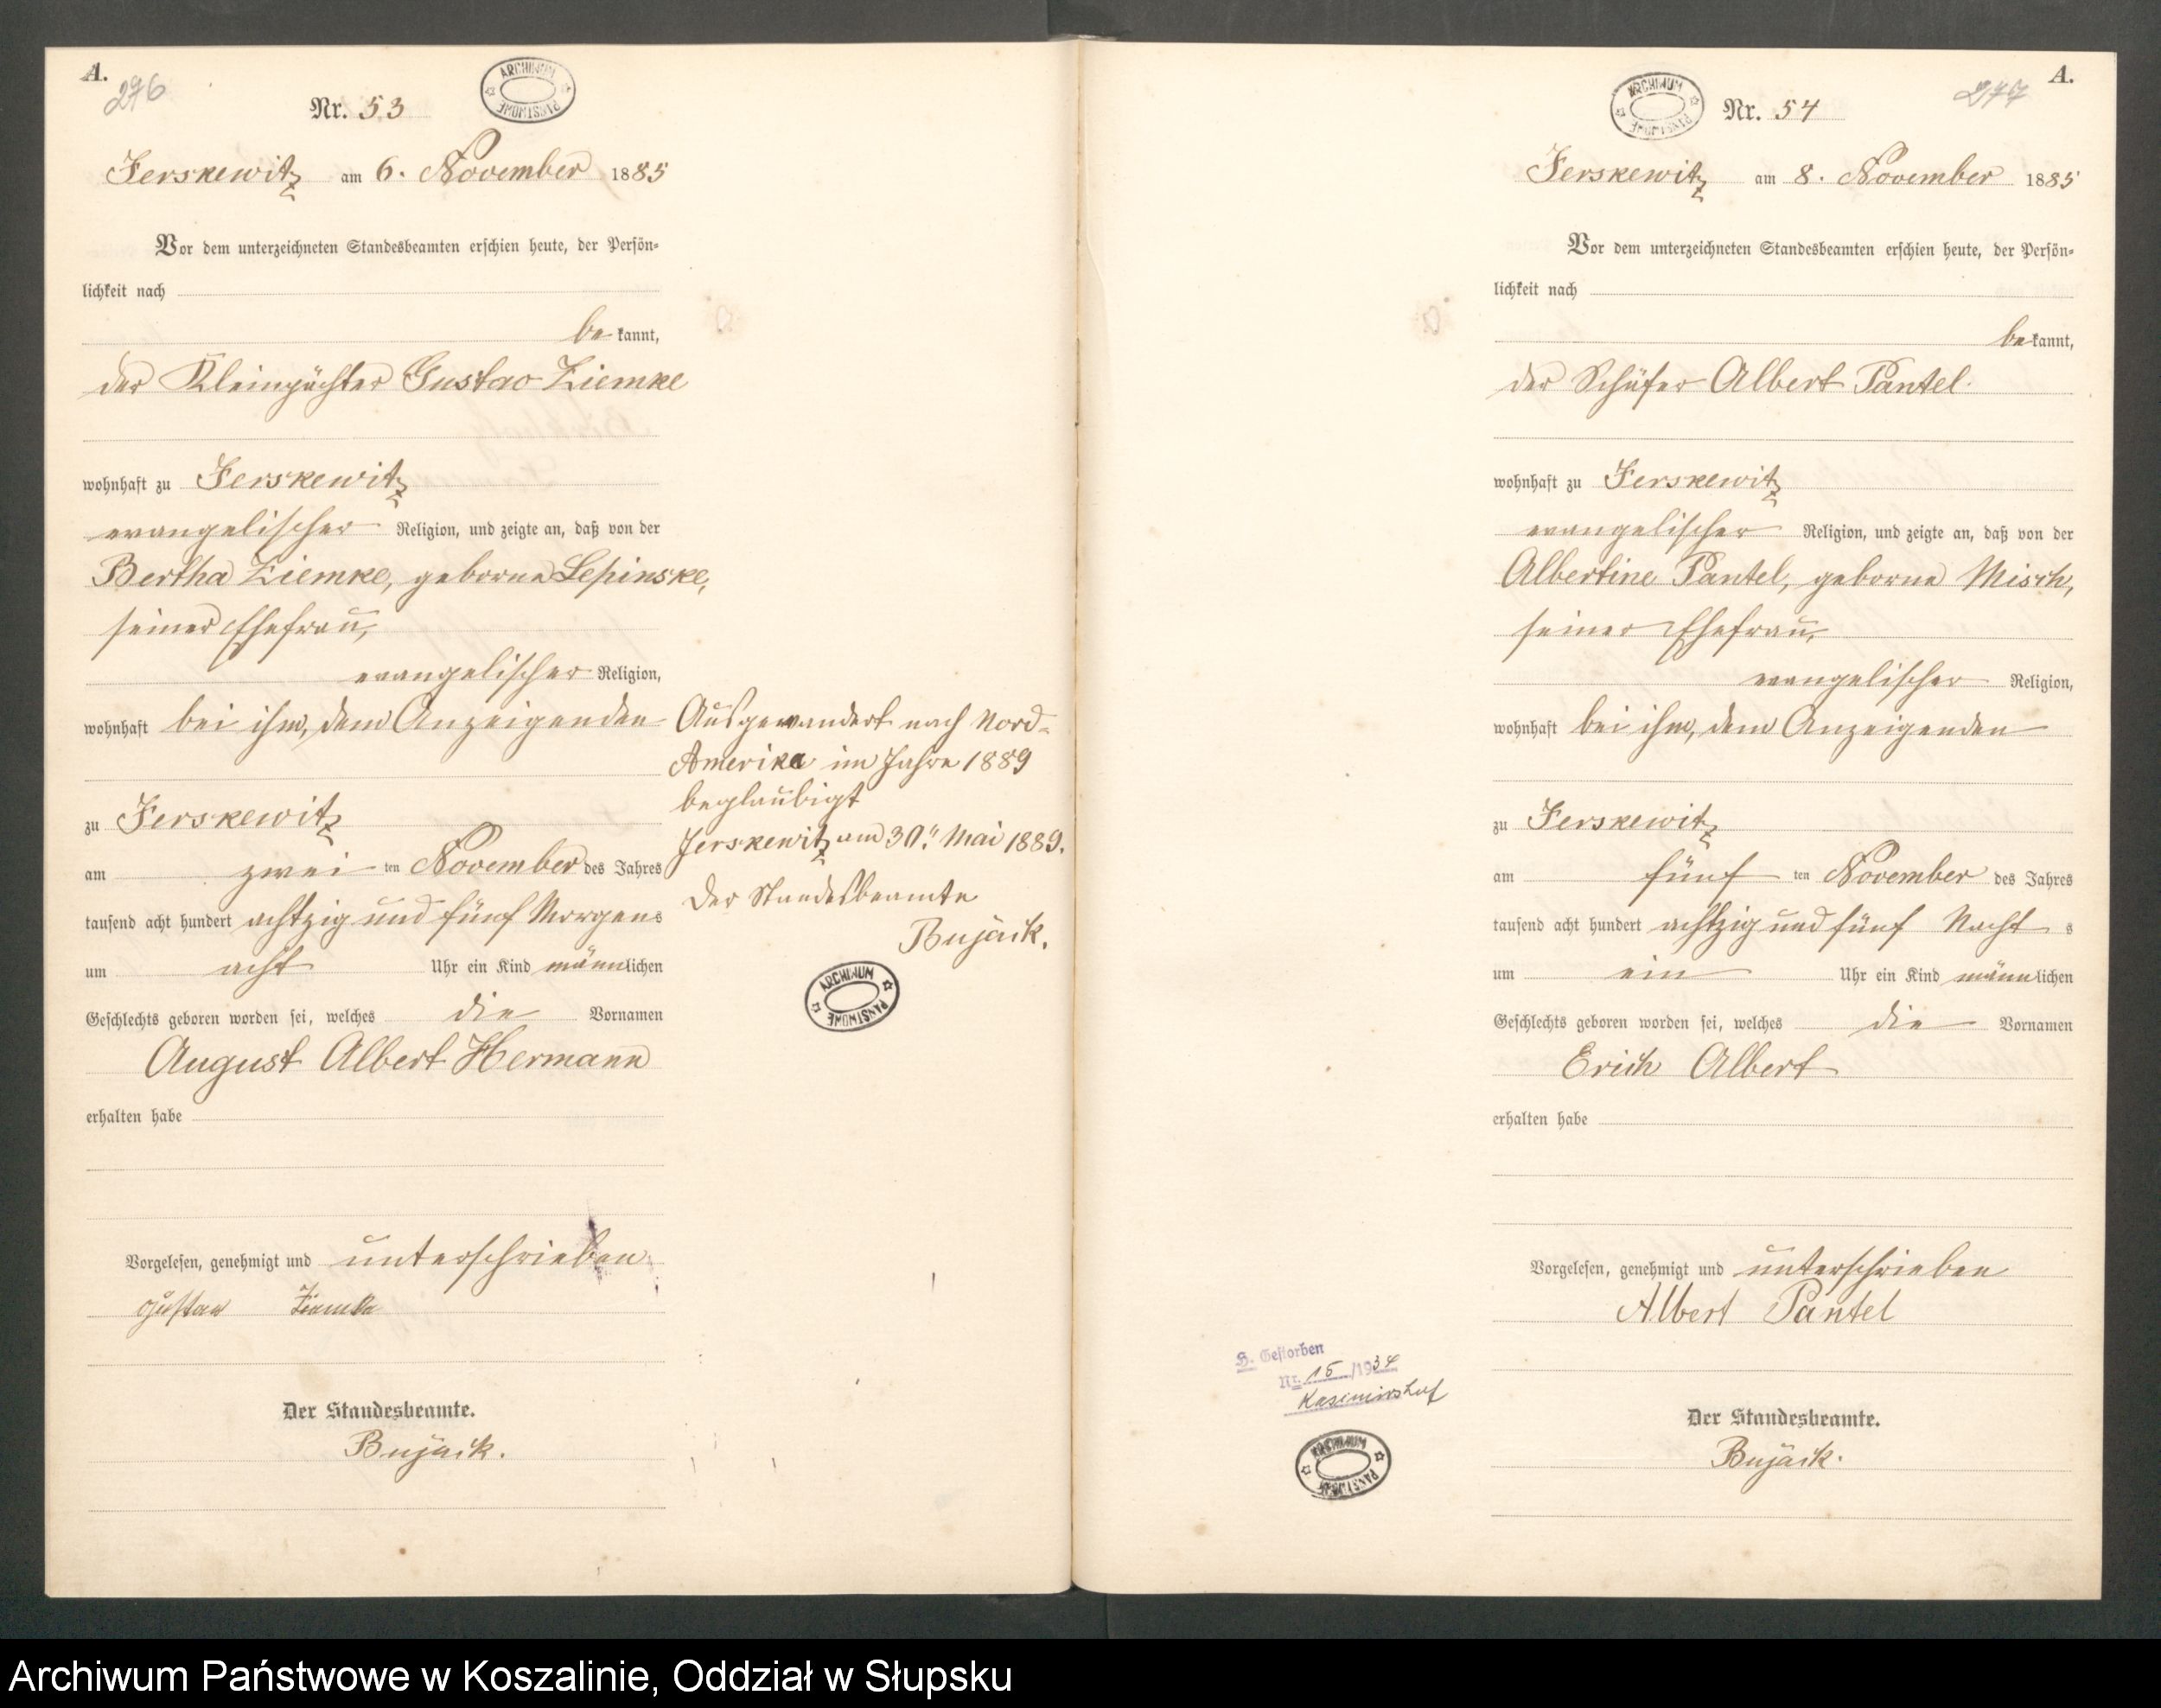 A.
276
Nr. 53
ARCHIWUM PAŃSTWOWE
Jerskewitz am 6. November 1885
Vor dem unterzeichneten Standesbeamten erschien heute, der Persön-
lichkeit nach
be kannt,
der Kleinpächter Gustav Ziemke
wohnhaft zu Jerskewitz
evangelischer Religion, und zeigte an, daß von der
Bertha Ziemke, geborne Lepinske,
seiner Ehefrau,
evangelischer Religion,
wohnhaft bei ihm, dem Anzeigenden
zu Jerskewitz
am zwei ten November des Jahres
tausend acht hundert achtzig und fünf Morgens
um acht Uhr ein Kind männlichen
Geschlechts geboren worden sei, welches die Vornamen
August Albert Hermann
erhalten habe
Vorgelesen, genehmigt und unterschrieben
Gustav Ziemke
Der Standesbeamte.
Bujack.
Ausgewandert nach Nord-
Amerika im Jahre 1889
beglaubigt
Jerskewitz am 30ten Mai 1889.
Der Standesbeamte
Bujack.
ARCHIWUM PAŃSTWOWE
A.
277
ARCHIWUM PAŃSTWOWE
Nr. 54
Jerskewitz am 8. November 1885
Vor dem unterzeichneten Standesbeamten erschien heute, der Persön-
lichkeit nach
be kannt,
der Schäfer Albert Pantel
wohnhaft zu Jerskewitz
evangelischer Religion, und zeigte an, daß von der
Albertine Pantel, geborne Misch,
seiner Ehefrau,
evangelischer Religion,
wohnhaft bei ihm, dem Anzeigenden
zu Jerskewitz
am fünf ten November des Jahres
tausend acht hundert achtzig und fünf Nacht s
um ein Uhr ein Kind männlichen
Geschlechts geboren worden sei, welches die Vornamen
Erich Albert
erhalten habe
Vorgelesen, genehmigt und unterschrieben
Albert Pantel
Der Standesbeamte.
Bujack.
H. Gestorben
Nr. 15 /1934
Kasimirshof
ARCHIWUM PAŃSTWOWE
Archiwum Państwowe w Koszalinie, Oddział w Słupsku